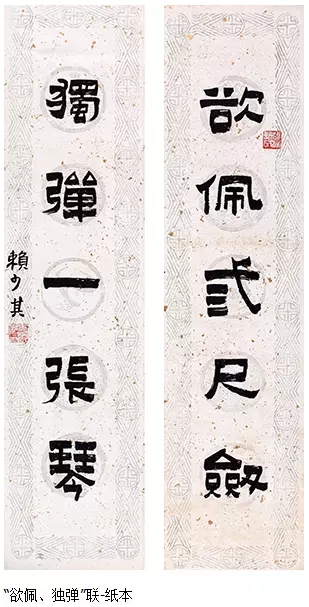 欲佩弎尺劒
獨彈一張琴
賴少其
“欲佩、独弹”联-纸本